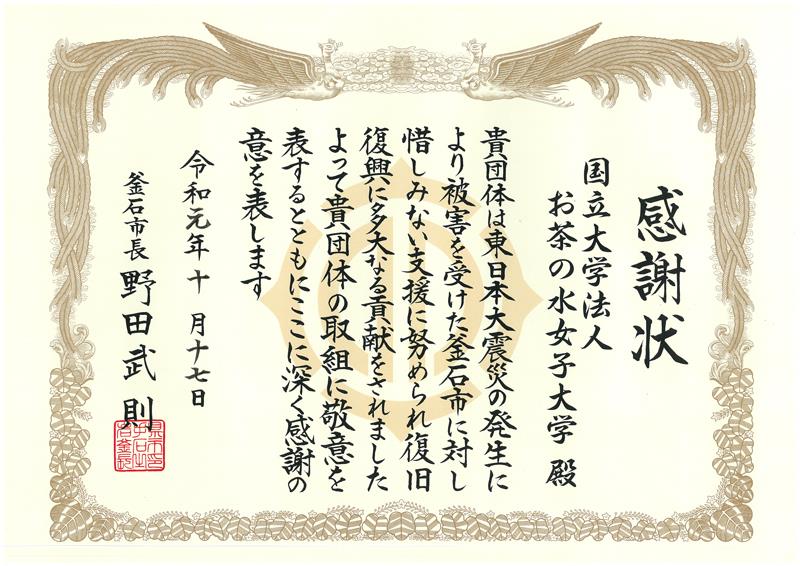 感謝状
国立大学法人
お茶の水女子大学 殿
貴団体は東日本大震災の発生に
より被害を受けた釜石市に対し
惜しみない支援に努められ復旧
復興に多大なる貢献をされました
よって貴団体の取組に敬意を
表するとともにここに深く感謝の
意を表します
令和元年十月十七日
釜石市長 野田武則